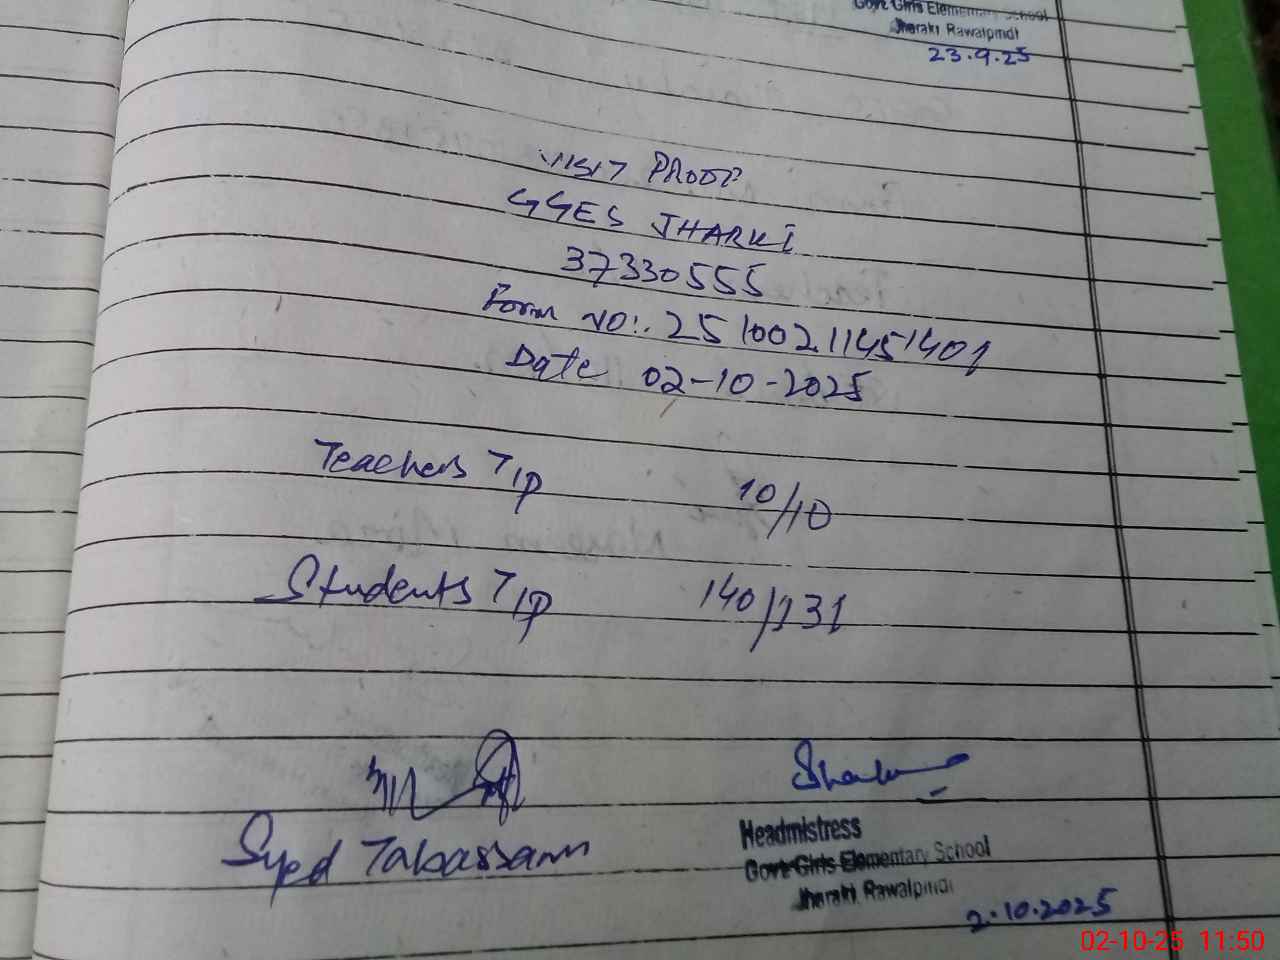 Govt Girls Elementary School
Jharaki Rawalpindi
23.9.25
VISIT PROOF
GGES JHARKI
37330555
Form NO:. 25100211451401
Date 02-10-2025
Teachers T/P 10/10
Students T/P 140/131
Syed Tabassam
Headmistress
Govt Girls Elementary School
Jharaki Rawalpindi
2.10.2025
02-10-25 11:50